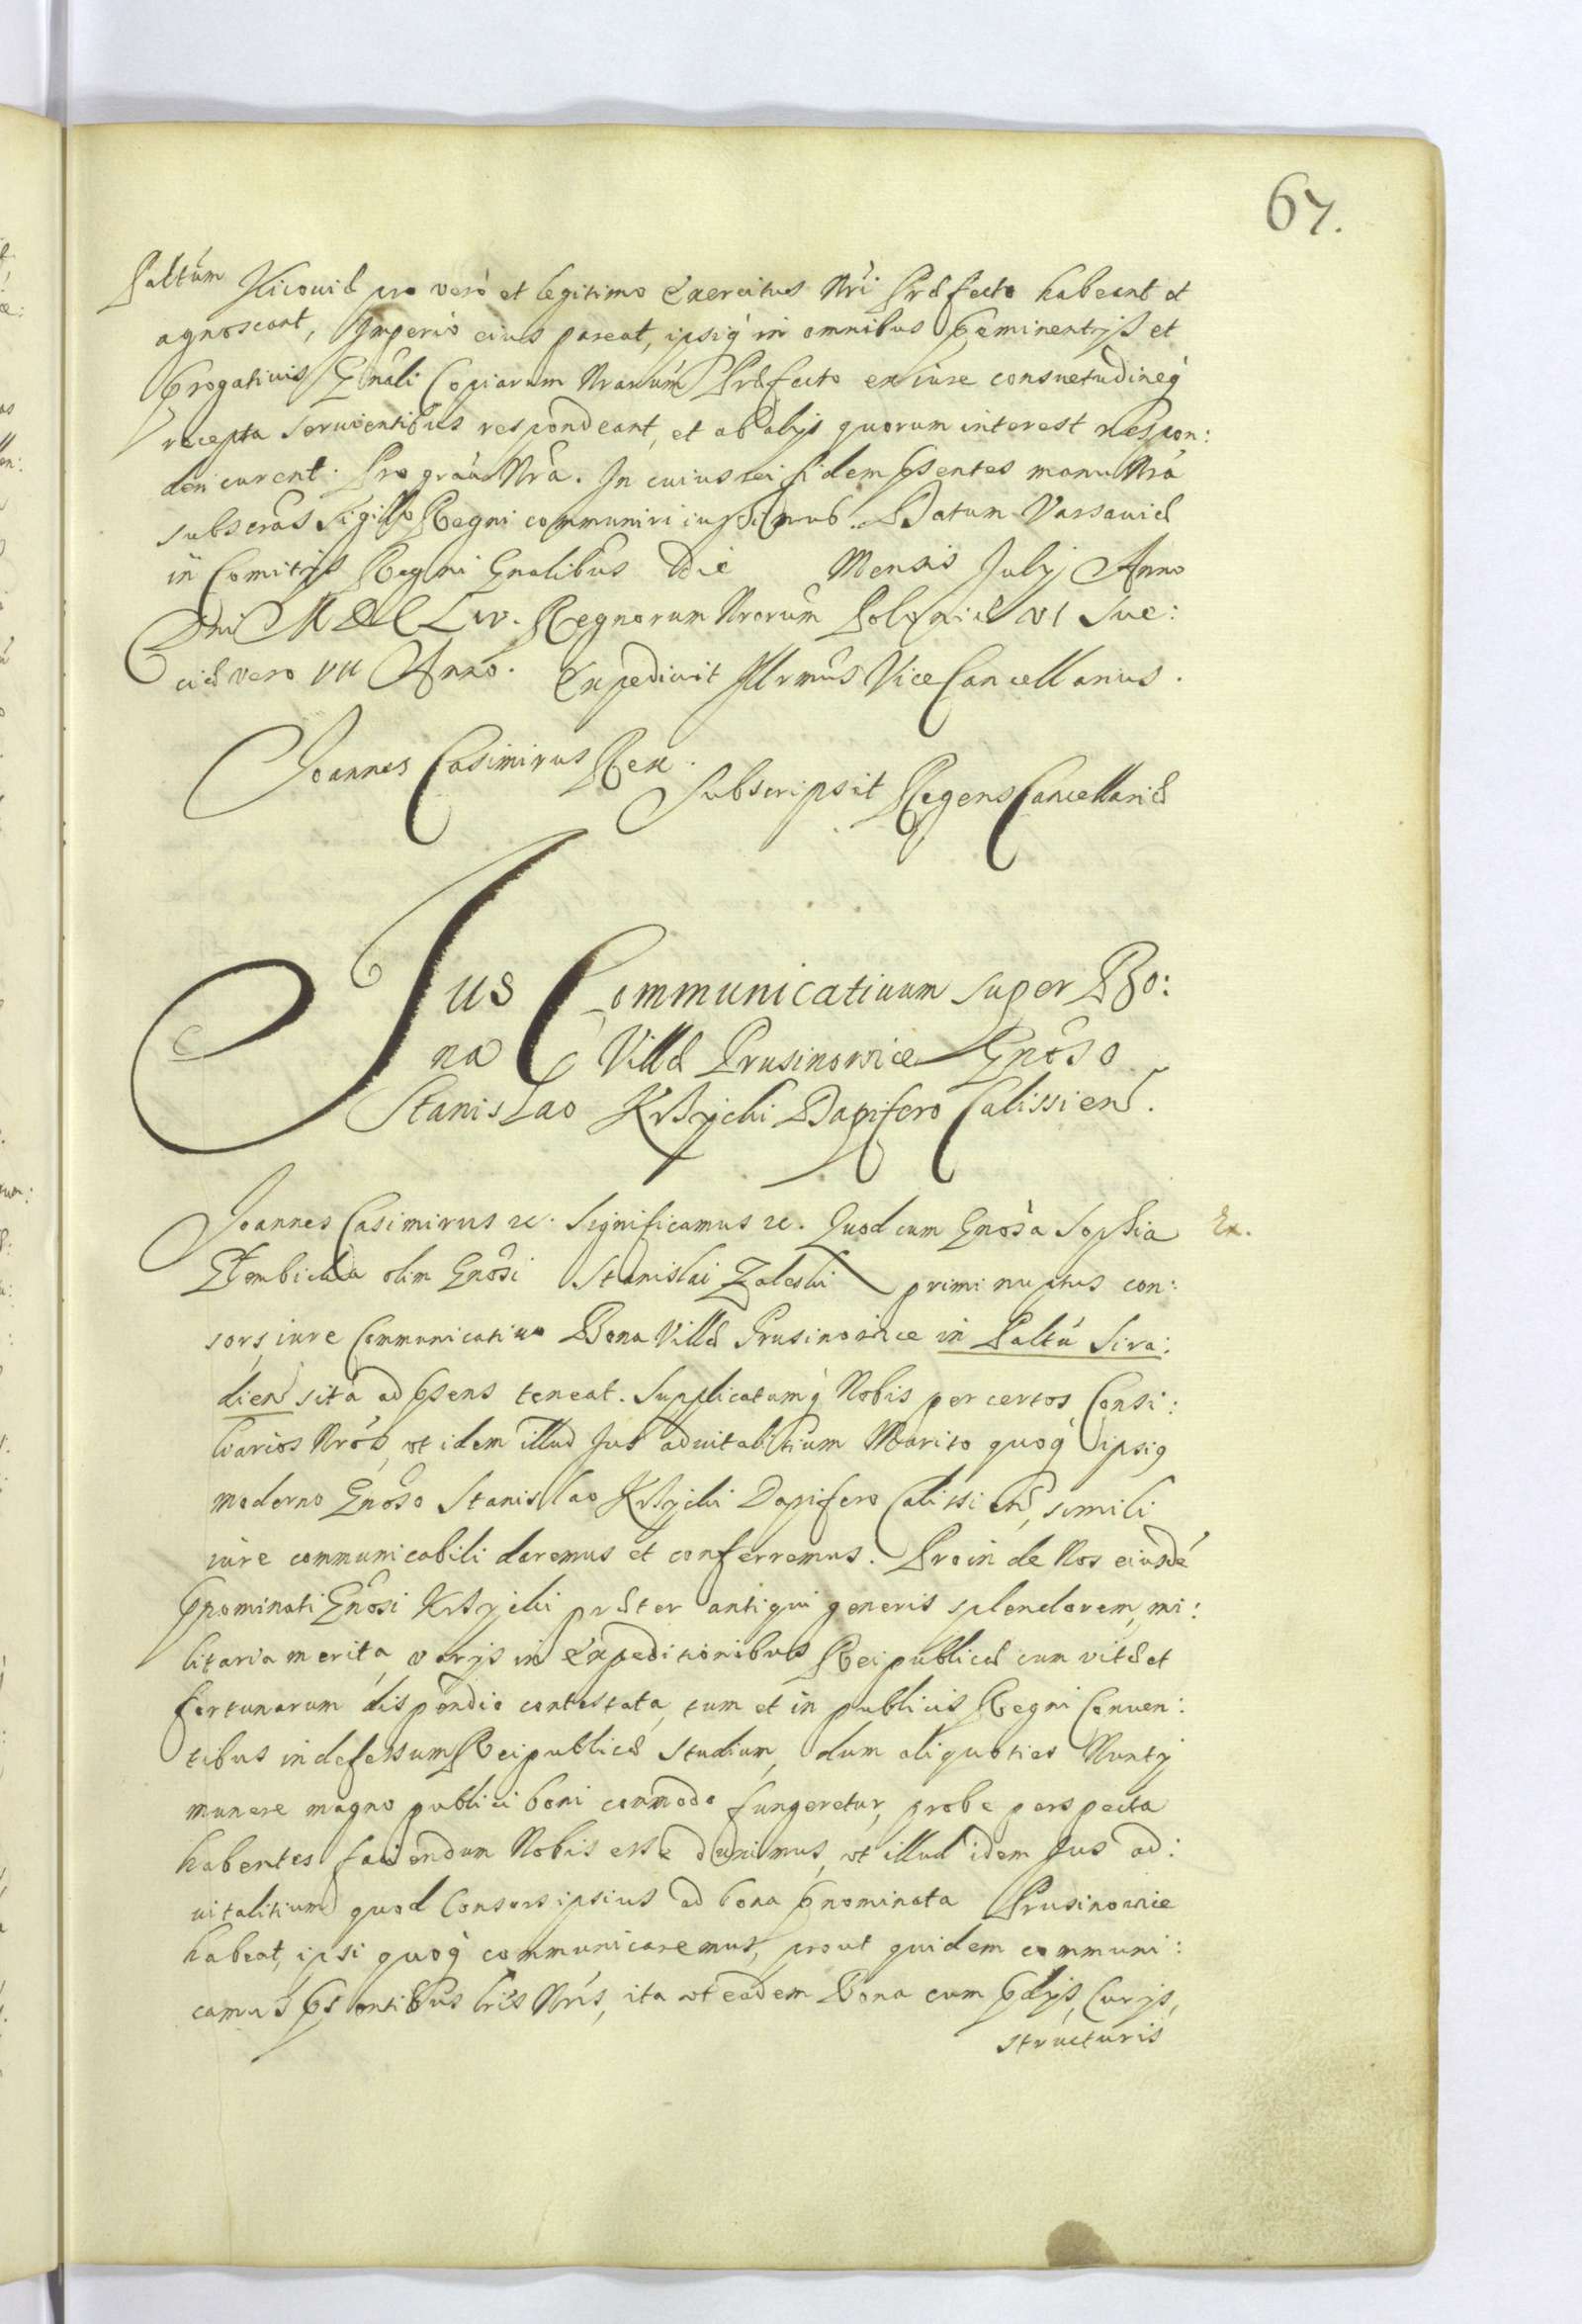 67.
Paltúm Kicouiæ pro verò et legitimo Exercitus Nrĩ Præfecto habeant et
agnoscant, Imperiò eius pareat, ipsiq́ in omnibus Pæminentijs et
Progatiuis Gnâli Copiarum Nrarúm Præfecto ex iure consuetudineq́
recepta seruientibus respondeant, et ab alijs quorum interest respon:
deri curent. Pro grãa Nrâ. In cuius rei fidem Psentes manu Nrâ
subscrâs Sigillo Regni communiri iussimus. Datum Varsauiæ
in Comitijs Regni Gnalibus Die Mensis Julij Anno
Dni MDCLIV. Regnorum Nrorum Poloniæ VI Sue:
ciæ vero VII Anno. Expediuit Illrmũs Vice Cancellarius.
Joannes Casimirus Rex.
Subscripsit Regens Cancellariæ
Jus Communicatiuum super Bo:
na Villæ Prusinowice Gnôso
Stanislao Krzycki Dapifero Calissien.
Joannes Casimirus &c. Significamus &c. Quod cum Gnôsa Sophia
Ex.
Głembicka olim Gnôsi Stanislai Zaleski primi nuptus con:
sors, iure Communicatiuo Bona Villæ Prusinowice in Paltú Sira:
dien sita ad Psens teneat. Supplicatumq́ Nobis per certos Consi:
liarios Nrôs, vt idem illud Jus aduitalitium Marito quoq́ ipsiq
moderno Gnôso Stanislao Krzycki Dapifero Calissien, simili
iure communicabili daremus et conferremus. Proinde Nos eiusdé
Pnominati Gnôsi Krzycki præter antiqui generis splendorem, mi:
litaria merita, varijs in Expeditionibus Reipublicæ cum vitæ et
fortunarum dispendio contestata, tum et in publicis Regni Conuen:
tibus indefessum Reipublicæ studium, dum aliquoties Nuntij
munere magno publici boni commodo fungeretur, probe perspecta
habentes faciendum Nobis esse duximus, vt illud idem Jus ad:
uitalitium quod Consors ipsius ad bona Pnominata Prusinowice
habeat, ipsi quoq́ communicaremus, prout quidem communi:
camus Psentibus lrîs Nrîs, ita vt eadem Bona cum Pdijs, Curijs,
structuris